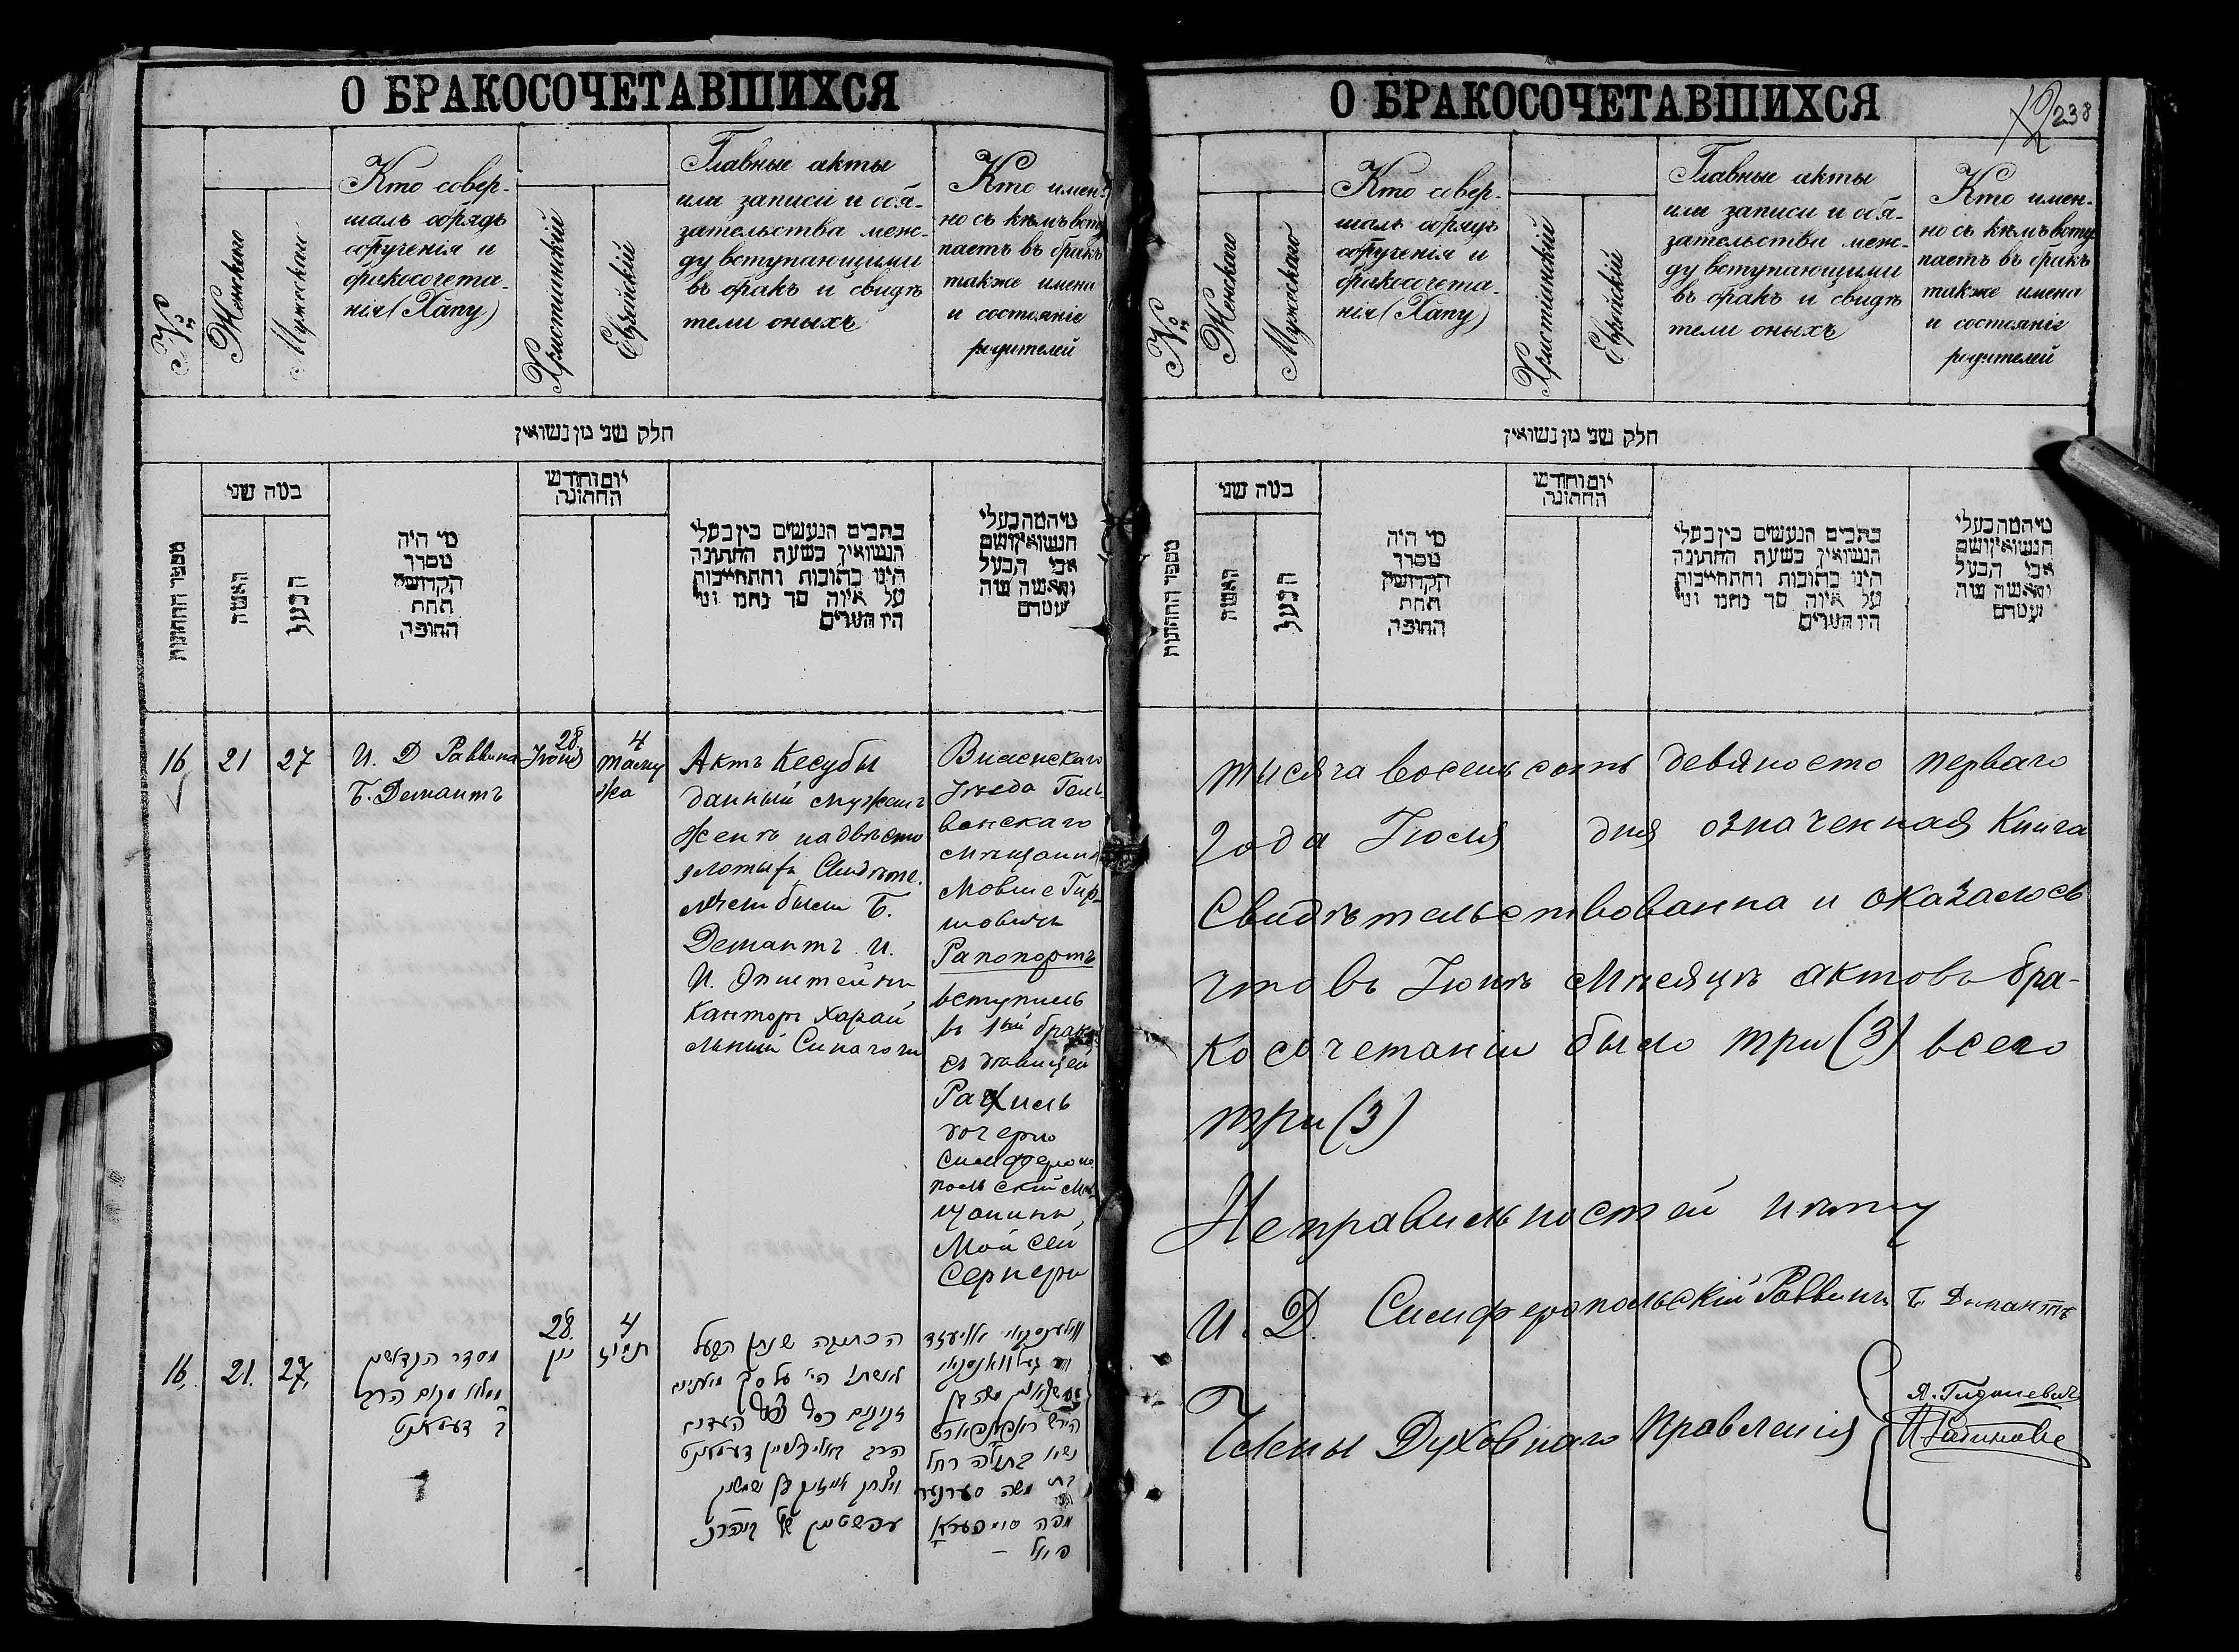 О БРАКОСОЧЕТАВШИХСЯ
№
Женскаго
Мужескаго
Кто совер-
шалъ обрядъ
обрученія и
бракосочета-
нія (Хапу)
Христіанскій
Еврейскій
Главные акты
или записи и обя-
зательства меж-
ду вступающими
въ бракъ и свидѣ
тели оныхъ
Кто имен-
но съ кѣмъ всту
паетъ въ бракъ
также имена
и состояніе
родителей
חלק שני מן נשואין
מספר החתונות
כמה שני
האשה
הבעל
מי היה
מסדר
הקדושין
תחת
החופה
יום וחודש
החתונה
כתבים הנעשים בין בעלי
הנשואין בשעת החתונה
היינו כתובות והתחייבות
על איזה סך נתנו ומי
היו העדים
מי המה בעלי
הנשואין ושם
אבי הבעל
והאשה ומה
מעמדם
16
21
27
И. Д Раввина
Б. Демантъ
28
Іюня
4
таму
жа
Актъ Кесубы
данный мужемъ
женѣ на двѣсти
злотыхъ Свидѣте
лями были Б.
Демантъ и
И. Эпштейнъ
Канторъ Хорай
льный Синагоги
Виленскаго
Уѣзда Гель-
ванскаго
мѣщанинъ
Мовше Гир-
шовичъ
Рапопортъ
вступилъ
въ 1ый бракъ
съ дѣвицей
Рахиль
дочерью
Симферопо
польскій мѣ
щанинъ,
Мойсей
Сернеръ
16.
21.
27.
מסדר הקדושין
ממלא מקום הרב
ב דעמאנט
28.
יון
4
תמוז
הכתובה שנתן הבעל
לאשתו הי' על סך מאתים
זהובים כסף העדים
הרב דעמאנט
משה בן
הירש ראפאפארט
נשא בתולה רחל
בת משה סערנער
О БРАКОСОЧЕТАВШИХСЯ
238
№
Женскаго
Мужескаго
Кто совер-
шалъ обрядъ
обрученія и
бракосочета-
нія (Хапу)
Христіанскій
Еврейскій
Главные акты
или записи и обя-
зательства меж-
ду вступающими
въ бракъ и свидѣ
тели оныхъ
Кто имен-
но съ кѣмъ всту
паетъ въ бракъ
также имена
и состояніе
родителей
חלק שני מן נשואין
מספר החתונות
כמה שני
האשה
הבעל
מי היה
מסדר
הקדושין
תחת
החופה
יום וחודש
החתונה
כתבים הנעשים בין בעלי
הנשואין בשעת החתונה
היינו כתובות והתחייבות
על איזה סך נתנו ומי
היו העדים
מי המה בעלי
הנשואין ושם
אבי הבעל
והאשה ומה
מעמדם
тысяча восемьсотъ девяносто перваго
года Іюля дня означенная Книга
Свидѣтельствованна и оказалось
что въ Іюнѣ мѣсяцѣ актовъ бра-
косочетаніи было три (3) всего
три (3)
Неправильностей нѣту
И. Д. Симферопольскій Раввинъ Б Демантъ
Члены Духовнаго Правленія